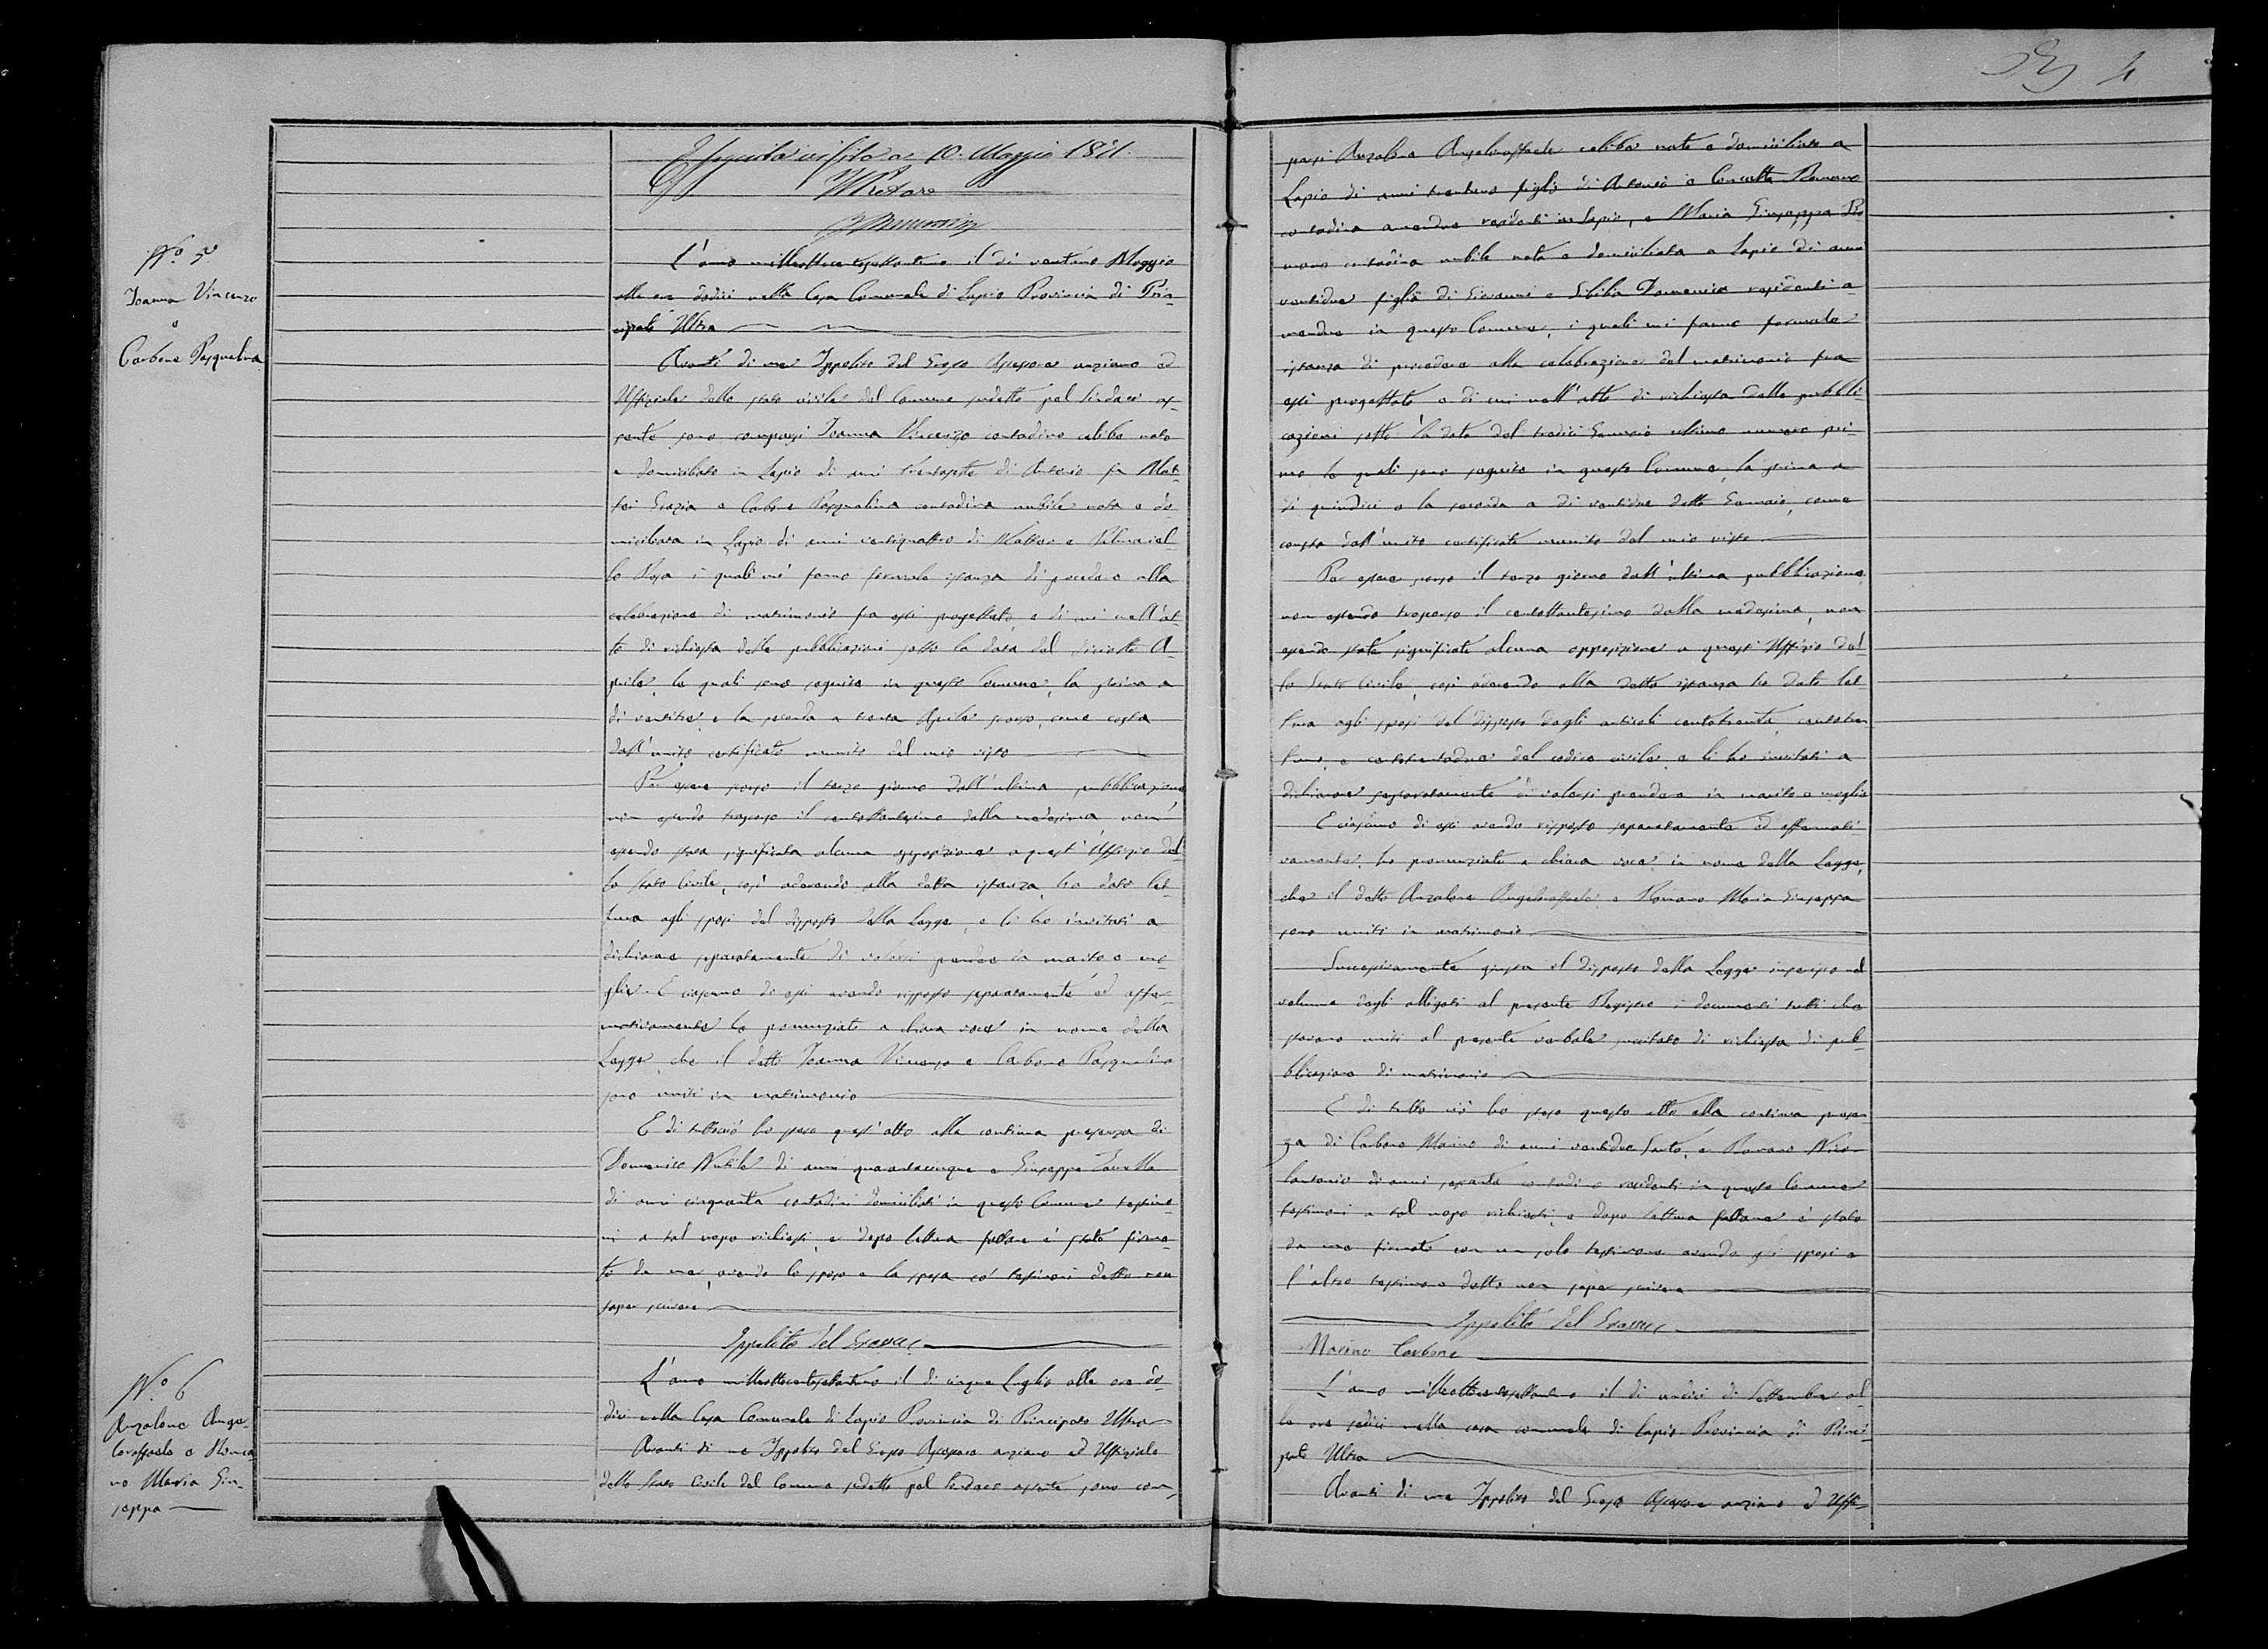 Eseguita visita a 10. Maggio 1871.
Il Pretore
N.° 5°
Joanna Vincenzo
e
Carbone Pasqualina
L'anno milleottocentosettantuno il dì ventuno Maggio
alle ore dodici nella Casa Comunale di Lapio Provincia di Prin-
cipato Ultra
Avanti di me Ippolito del Grosso Assessore anziano ed
Uffiziale dello stato civile del Comune sudetto pel Sindaco as-
sente sono comparsi Joanna Vincenzo contadino celibe nato
e domiciliato in Lapio di anni trentasette di Antonio fu Mat-
tei Grazia e Carbone Pasqualina contadina nubile nata e do
miciliata in Lapio di anni ventiquattro di Matteo e Palmariel-
lo Rosa i quali mi fanno formale istanza di procedere alla
celebrazione di matrimonio fra essi progettato, e di cui nell'at-
to di richiesta delle pubblicazioni sotto la data del diciotto A-
prile, le quali sono seguite in questo Comune, la prima a
di ventitre e la seconda a trenta Aprile scorso, come costa
dall'unito certificato munito del mio visto
Per essere scorso il terzo giorno dall'ultima pubblicazione,
non essendo trascorso il centottantesimo dalla medesima non
essendo stata significata alcuna opposizione a quest'Uffizio del-
lo Stato Civile, così aderendo alla detta istanza, ho dato let-
tura agli sposi del disposto della Legge, e li ho invitati a
dichiarare separatamente di volersi prendere in marito e mo-
glie. E ciascuno di essi avendo risposto separatamente ed affer-
mativamente ho pronunziato a chiara voce in nome della
Legge che il detto Joanna Vincenzo e Carbone Pasqualina
sono uniti in matrimonio
E di tuttociò ho steso quest'atto alla continua presenza di
Domenico Nubile di anni quarantacinque e Giuseppe
di anni cinquanta contadini domiciliati in questo Comune testimo-
ni a tal uopo richiesti, e dopo lettura fattane è stato firma-
to da me, avendo lo sposo e la sposa co' testimoni detto non
saper scrivere
Ippolito del Grosso
N.° 6
Anzalone Ange-
loraffaele e Roma
no Maria Giu-
seppa
L'anno milleottocentosettantuno il dì cinque Luglio alle ore do-
dici nella Casa Comunale di Lapio Provincia di Principato Ultra
Avanti di me Ippolito del Grosso Assessore anziano ed Uffiziale
dello Stato Civile del Comune sudetto pel Sindaco assente sono com-
4
parsi Anzalone Angeloraffaele celibe nato e domiciliato a
Lapio di anni trentuno figlio di Antonio e Concetta Romano
contadino amendue residenti in Lapio, e Maria Giuseppa Ro
mano contadina nubile nata e domiciliata a Lapio di anni
ventidue figlia di Giovanni e Sibilia Domenica residenti a-
mendue in questo Comune, i quali mi fanno formale
istanza di procedere alla celebrazione del matrimonio fra
essi progettato e di cui nell'atto di richiesta delle pubbli-
cazioni sotto la data del tredici Gennaio ultimo numero pri-
mo le quali sono seguite in questo Comune, la prima a
di quindici e la seconda a di ventidue detto Gennaio, come
consta dall'unito certificato munito del mio visto
Per essere scorso il terzo giorno dall'ultima pubblicazione
non essendo trascorso il centottantesimo dalla medesima, non
essendo stata significata alcuna opposizione a quest'Uffizio del
lo Stato Civile, così aderendo alla detta istanza ho dato let
tura agli sposi del disposto dagli articoli centotrenta, centotren
tuno, e centotrentadue del codice civile, e li ho invitati a
dichiarare separatamente di volersi prendere in marito e moglie
E ciascuno di essi avendo risposto separatamente ed affermati-
vamente, ho pronunziato a chiara voce in nome della Legge,
che il detto Anzalone Angeloraffaele e Romano Maria Giuseppa
sono uniti in matrimonio
Successivamente giusta il disposto della Legge inserisco nel
volume degli alligati al presente Registro i documenti tutti che
stavano uniti al presente verbale succitato di richiesta di pub-
blicazione di matrimonio
E di tutto ciò ho steso questo atto alla continua presen
za di Carbone Marino di anni ventidue Sarto, e Romano Nico-
lantonio di anni sessanta contadino residenti in questo Comune
testimoni a tal uopo richiesti, e dopo lettura fattane è stato
da me firmato con un solo testimone avendo gli sposi e
l'altro testimone detto non saper scrivere
Ippolito del Grosso
Marino Carbone
L'anno milleottocentosettantuno il dì undici di Settembre al-
le ore sedici nella casa comunale di Lapio Provincia di Princi-
pato Ultra
Avanti di me Ippolito del Grosso Assessore anziano ed Uffi-